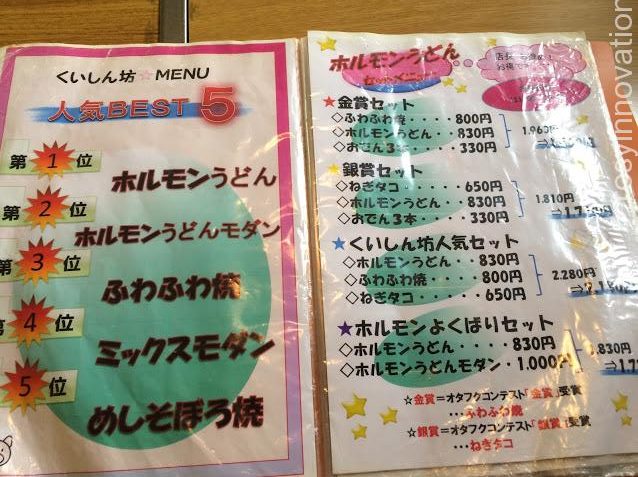 くいしん坊☆MENU
人気BEST 5
第1位
ホルモンうどん
第2位
ホルモンうどんモダン
第3位
ふわふわ焼
第4位
ミックスモダン
5位
めしそぼろ焼
ホルモンうどん
セットメニュー
店長
★金賞セット
◇ふわふわ焼・・・・800円
◇ホルモンうどん・・830円
◇おでん3本・・・・330円
1.960円
★銀賞セット
◇ねぎタコ・・・・・650円
◇ホルモンうどん・・830円
◇おでん3本・・・・330円
1.810円
★くいしん坊人気セット
◇ホルモンうどん・・830円
◇ふわふわ焼・・・・800円
◇ねぎタコ・・・・・650円
2.280円
★ホルモンよくばりセット
◇ホルモンうどん・・・・・830円
◇ホルモンうどんモダン・1.000円
.830円
☆金賞=オタフクコンテスト「金賞」受賞
・・・ふわふわ焼
☆銀賞=オタフクコンテスト「銀賞」受賞
・・・ねぎタコ